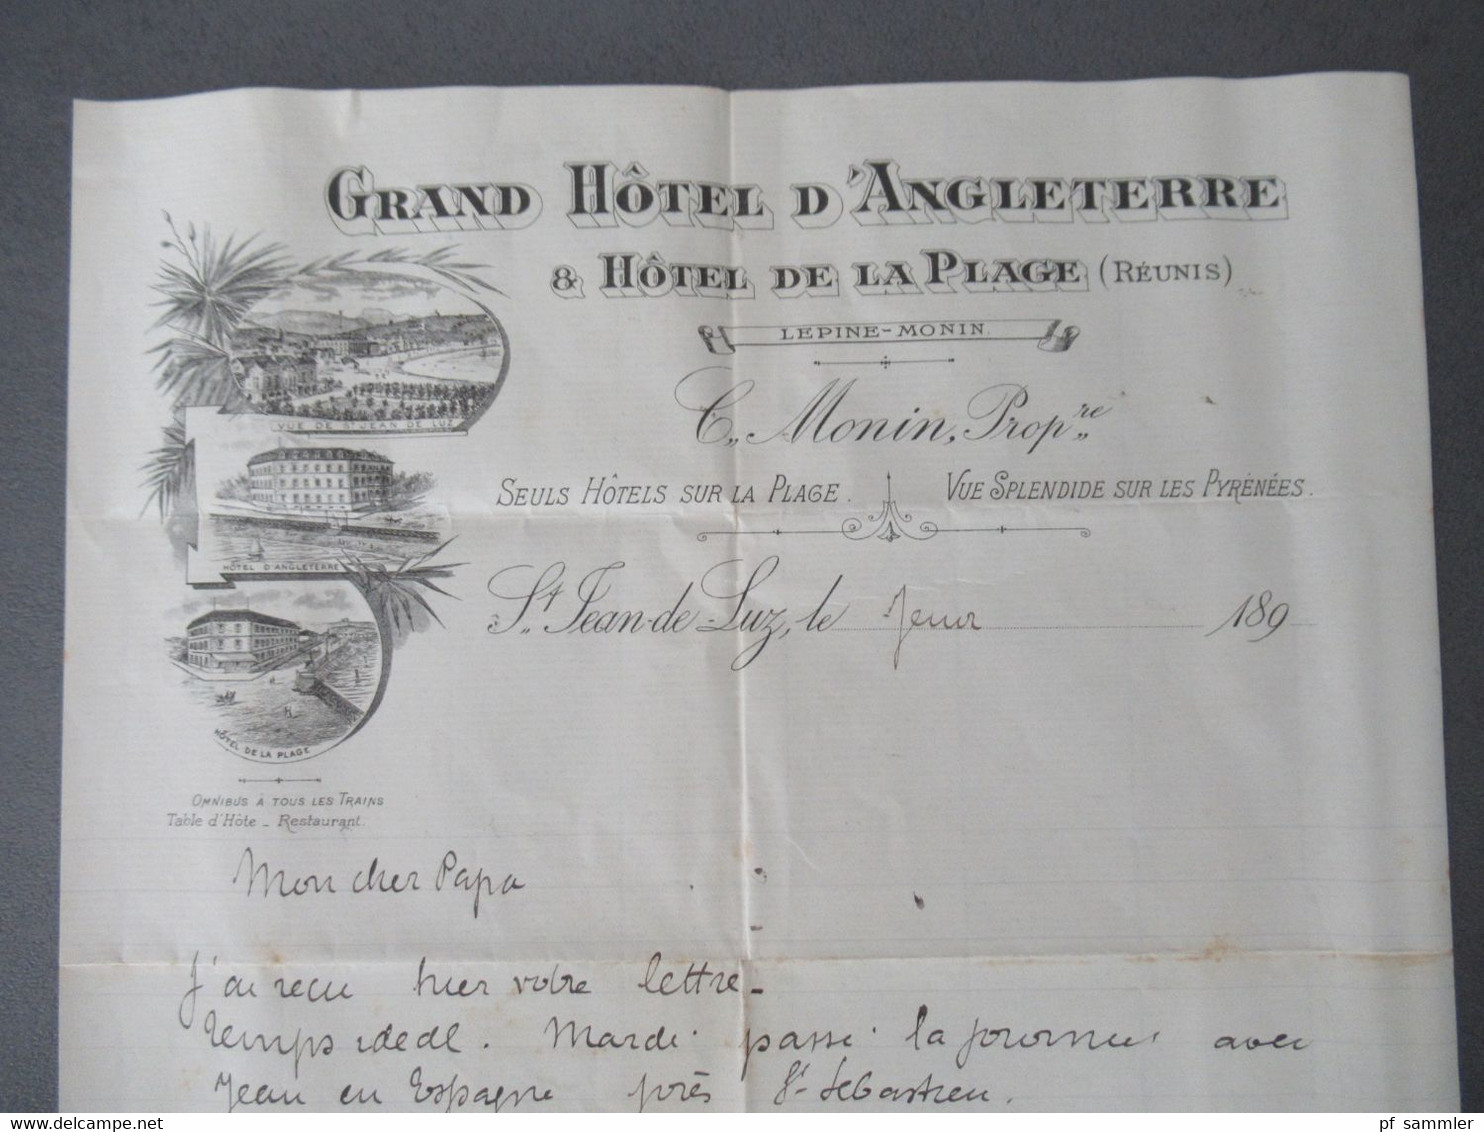 GRAND HÔTEL D'ANGLETERRE
& HÔTEL DE LA PLAGE (RÉUNIS)
LEPINE-MONIN.
C. Monin, Prop.re
SEULS HÔTELS SUR LA PLAGE. VUE SPLENDIDE SUR LES PYRÉNÉES.
VUE DE ST JEAN DE LUZ
HÔTEL D'ANGLETERRE
HÔTEL DE LA PLAGE
St. Jean-de-Luz, le 189
OMNIBUS À TOUS LES TRAINS
Table d'Hôte - Restaurant.
Mon cher Papa
J'ai recu hier votre lettre-
Temps idedl. Mardi passé la journée avec
Jean en Espagne près St Sébastien.
www.delcampe.net
pf_sammler